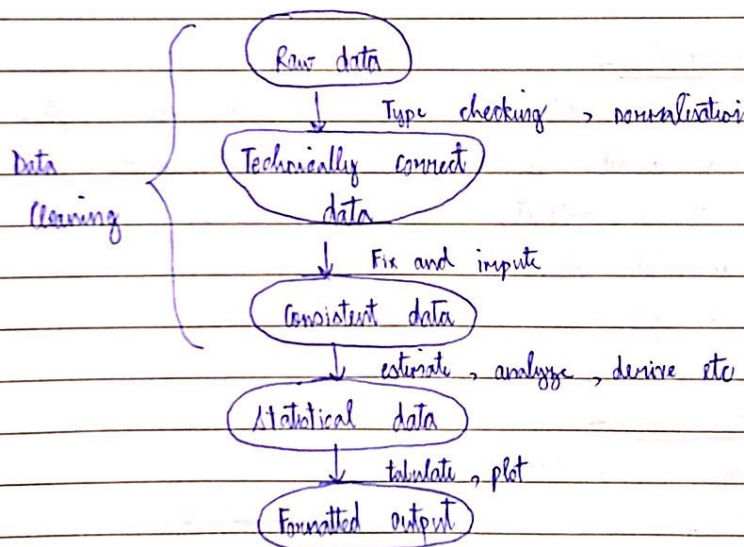 Raw data
Type checking, normalisation
Data
Cleaning
Technically correct
data
Fix and impute
Consistent data
estimate, analyze, derive etc
Statistical data
tabulate, plot
Formatted output